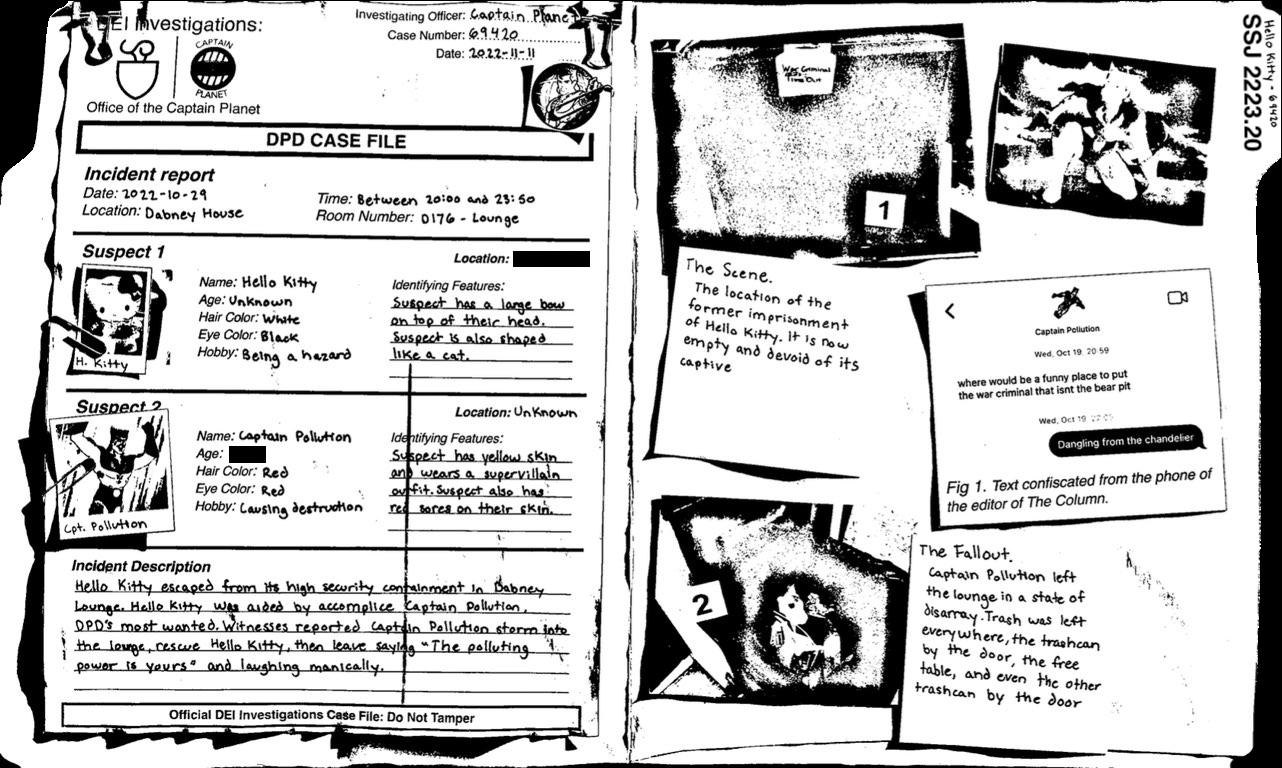 DEI Investigations:
CAPTAIN
PLANET
Office of the Captain Planet
Investigating Officer: Captain Planet
Case Number: 69420
Date: 2022-11-11
DPD CASE FILE
Incident report
Date: 2022-10-29
Location: Dabney House
Time: Between 20:00 and 23:50
Room Number: D176 - Lounge
Suspect 1
Location:
H. Kitty
Name: Hello Kitty
Age: Unknown
Hair Color: White
Eye Color: Black
Hobby: Being a hazard
Identifying Features:
Suspect has a large bow
on top of their head.
Suspect is also shaped
like a cat.
Suspect 2
Location: Unknown
Cpt. Pollution
Name: Captain Pollution
Age:
Hair Color: Red
Eye Color: Red
Hobby: Causing destruction
Identifying Features:
Suspect has yellow skin
and wears a supervillain
outfit. Suspect also has
red sores on their skin.
Incident Description
Hello Kitty escaped from its high security containment in Dabney
Lounge. Hello Kitty was aided by accomplice Captain Pollution,
DPD's most wanted. Witnesses reported Captain Pollution storm into
the lounge, rescue Hello Kitty, then leave saying "The polluting
power is yours" and laughing manically.
Official DEI Investigations Case File: Do Not Tamper
War Criminal
Time Out
1
The Scene.
The location of the
former imprisonment
of Hello Kitty. It is now
empty and devoid of its
captive
2
Hello Kitty - 69420
SSJ 2223.20
Captain Pollution
Wed, Oct 19, 20:59
where would be a funny place to put
the war criminal that isnt the bear pit
Wed, Oct 19
Dangling from the chandelier
Fig 1. Text confiscated from the phone of
the editor of The Column.
The Fallout.
Captain Pollution left
the lounge in a state of
disarray. Trash was left
everywhere, the trashcan
by the door, the free
table, and even the other
trashcan by the door